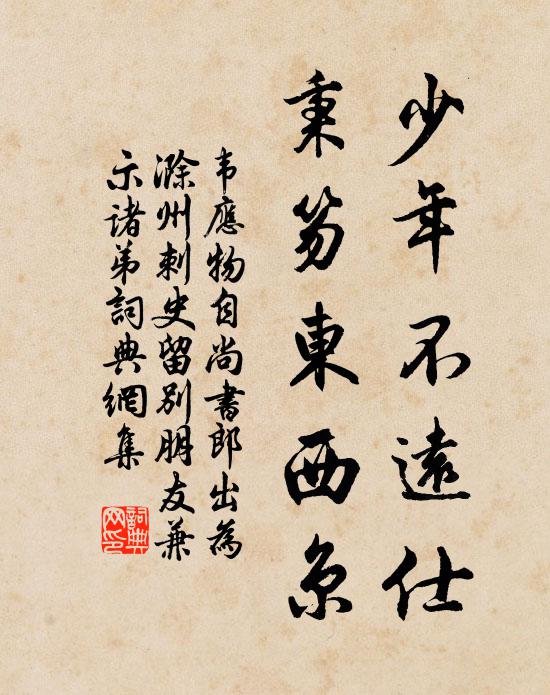 少年不遠仕
秉笏東西京
韦應物自尚書郎出為
滁州刺史留別朋友兼
示诸弟詞典網集
詞典網印